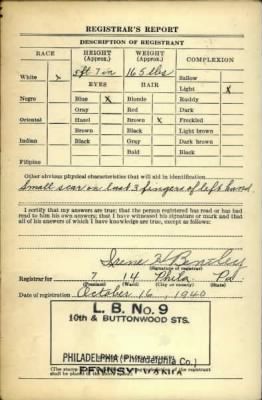 REGISTRAR'S REPORT
DESCRIPTION OF REGISTRANT
RACE HEIGHT (Approx.) WEIGHT (Approx.) COMPLEXION
5ft 7in 165 lbs
White x Sallow
EYES HAIR Light x
Negro Blue x Blonde Ruddy
Gray Red Dark
Oriental Hazel Brown x Freckled
Brown Black Light brown
Indian Black Gray Dark brown
Bald Black
Filipino
Other obvious physical characteristics that will aid in identification
Small scar on last 3 fingers of left hand.
I certify that my answers are true; that the person registered has read or has had
read to him his own answers; that I have witnessed his signature or mark and that
all of his answers of which I have knowledge are true, except as follows:
Irene
(Signature of registrar)
Registrar for 7 14 Phila Pa.
(Precinct) (Ward)
Date of registration October 16, 1940
L. B. No. 9
10th & BUTTONWOOD STS.
PHILADELPHIA (Philadelphia Co.)
PENNSYLVANIA
(The stamp
shall be placed